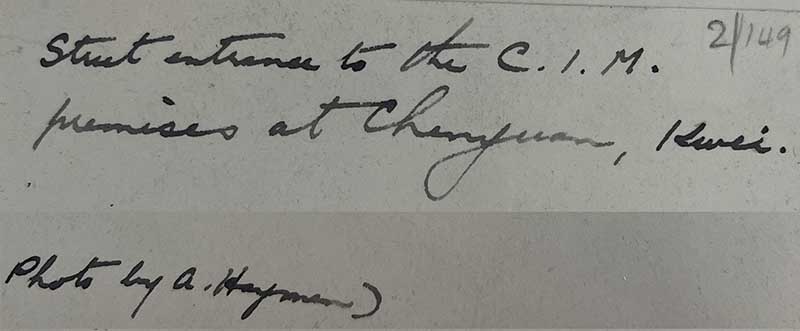 Street entrance to the C.I.M. 2/149
premises at Chenyuan, Kwei.
Photo by A. Hayman)